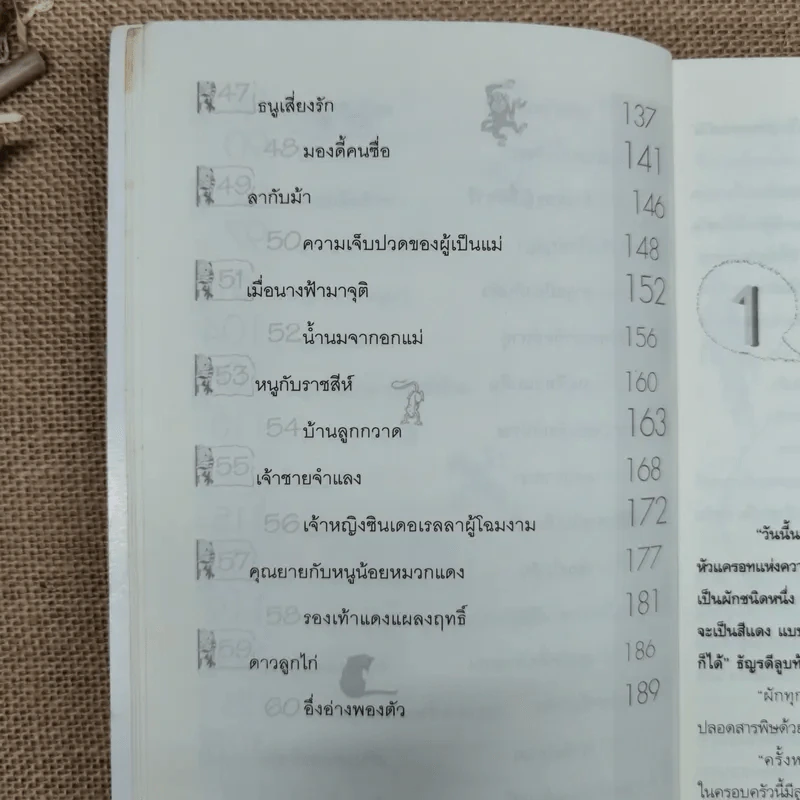 47 ธนูเสี่ยงรัก 137
48 มองดี้คนซื่อ 141
49 ลากับม้า 146
50 ความเจ็บปวดของผู้เป็นแม่ 148
51 เมื่อนางฟ้ามาจุติ 152
52 น้ำนมจากอกแม่ 156
53 หนูกับราชสีห์ 160
54 บ้านลูกกวาด 163
55 เจ้าชายจำแลง 168
56 เจ้าหญิงซินเดอเรลลาผู้โฉมงาม 172
57 คุณยายกับหนูน้อยหมวกแดง 177
58 รองเท้าแดงแผลงฤทธิ์ 181
59 ดาวลูกไก่ 186
60 อึ่งอ่างพองตัว 189
1
"วันนี้
หัวแครอทแห่งควา
เป็นผักชนิดหนึ่ง
จะเป็นสีแดง แบบ
ก็ได้" ธัญรดีลูบท้
"ผักทุก
ปลอดสารพิษด้วย
"ครั้งห
ในครอบครัวนี้มีลู